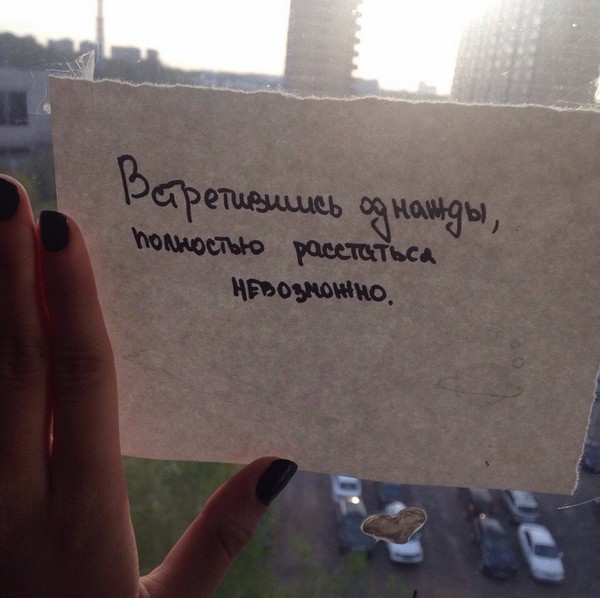 Встретившись однажды,
полностью расстаться
невозможно.